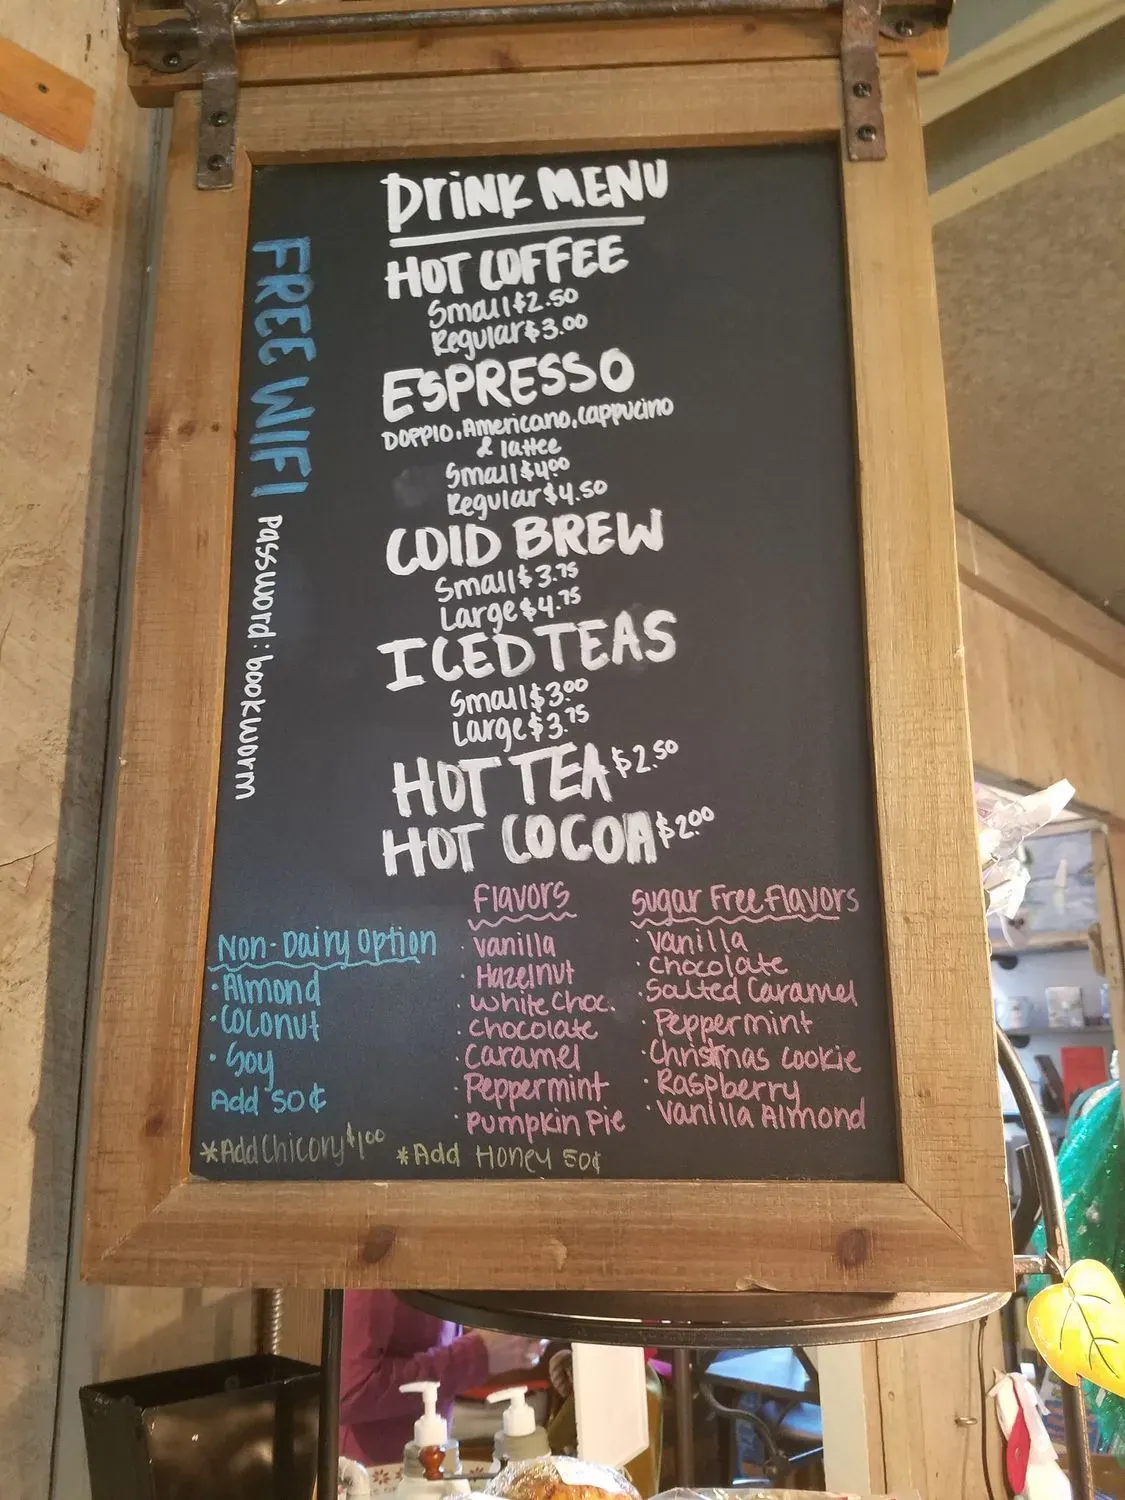 DRINK MENU
HOT COFFEE
Small $2.50
Regular $3.00
ESPRESSO
DOPPIO, Americano, Cappucino
& lattee
Small $4.00
Regular $4.50
COlD BREW
Small $3.75
Large $4.75
ICED TEAS
Small $3.00
Large $3.75
HOT TEA $2.50
HOT COCOA $2.00
FREE WIFI Password: bookworm
Non-Dairy Option
· Almond
· Coconut
· Soy
Add 50¢
Flavors
· Vanilla
· Hazelnut
· White Choc.
· Chocolate
· Caramel
· Peppermint
· Pumpkin Pie
Sugar Free Flavors
· Vanilla
· Chocolate
· Salted Caramel
· Peppermint
· Christmas Cookie
· Raspberry
· Vanilla Almond
*Add Chicory $1.00 *Add Honey 50¢